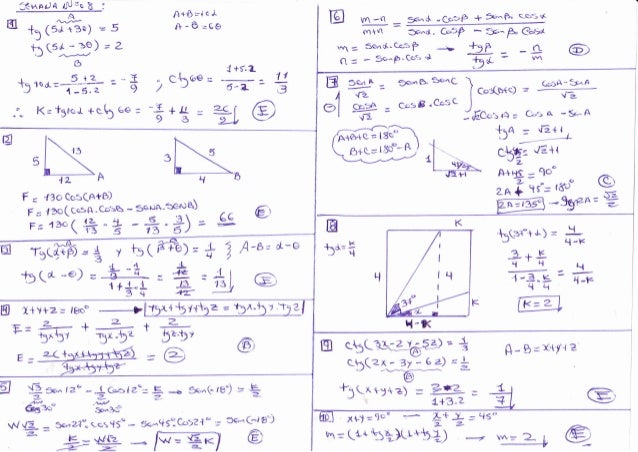 SEMANA Nº 08:
1
A
tg(5α+3θ) = 5
tg(5α-3θ) = 2
B
A+B=10α
A-B=6θ
tg10α = (5+2)/(1-5.2) = -7/9 ; ctg6θ = (1+5.2)/(5-2) = 11/3
∴ K = tg10α + ctg6θ = -7/9 + 11/3 = 26/ E
2
5 13 12 A
3 5 4 B
F = 130 cos(A+B)
F = 130(cosA.cosB - senA.senB)
F = 130(12/13 . 4/5 - 5/13 . 3/5) = 66 E
3 Tg(α+β) = 1/3 y tg(β+θ) = 1/4 } A-B = α-θ
tg(α-θ) = (1/3 - 1/4)/(1 + 1/3 . 1/4) = (1/12)/(13/12) = 1/13 E
4 x+y+z = 180° → tgx+tgy+tgz = tgx.tgy.tgz
E = 2/(tgx tgy) + 2/(tgx.tgz) + 2/(tgz.tgy)
E = 2(tgx+tgy+tgz)/(tgx tgy tgz) = 2 B
5 √3/2 sen12° - 1/2 cos12° = K/2 → sen(-18°) = K/2
cos30° sen30°
W√2/2 = sen27°.cos45° - sen45°.cos27° = sen(-18°)
K/2 = W√2/2 → W = √2/2 K E
6 (m-n)/(m+n) = (senα.cosβ + senβ.cosα)/(senα.cosβ - senβ.cosα)
m = senα.cosβ → tgβ/tgα = -n/m D
n = -senβ.cosα
7 senA/√2 = senB.senC
cosA/√2 = cosB.cosC
cos(B+C) = (cosA-senA)/√2
-√2cosA = cosA - senA
A+B+C=180°
B+C=180°-A
tgA = √2+1
1 45/2 √2+1
ctg45/2 = √2+1
A+45/2 = 90°
2A + 45° = 180° C
2A=135° → tg2A =
8 tgα = K/4
K 4 4 K 37° α 4-K
tg(37°+α) = 4/(4-K)
(3/4 + K/4)/(1 - 3/4 . K/4) = 4/(4-K)
K=2
9 ctg(3x-2y-5z) = 1/3
ctg(2x-3y-6z) = 1/2
A-B = x+y+z
tg(x+y+z) = (3-2)/(1+3.2) = 1/7 E
10 x+y=90° → x/2 + y/2 = 45°
m = (1+tg x/2)(1+tg y/2) → m = 2 E